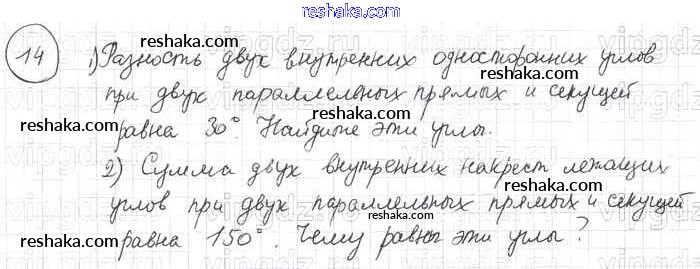 reshaka.com
14 1) Разность двух внутренних односторонних углов
reshaka.com reshaka.com
при двух параллельных прямых и секущей
reshaka.com reshaka.com
равна 30°. Найдите эти углы.
reshaka.com
2) Сумма двух внутренних накрест лежащих
reshaka.com
углов при двух параллельных прямых и секущей
reshaka.com reshaka.com reshaka.com
равна 150°. Чему равны эти углы?
reshaka.com reshaka.com